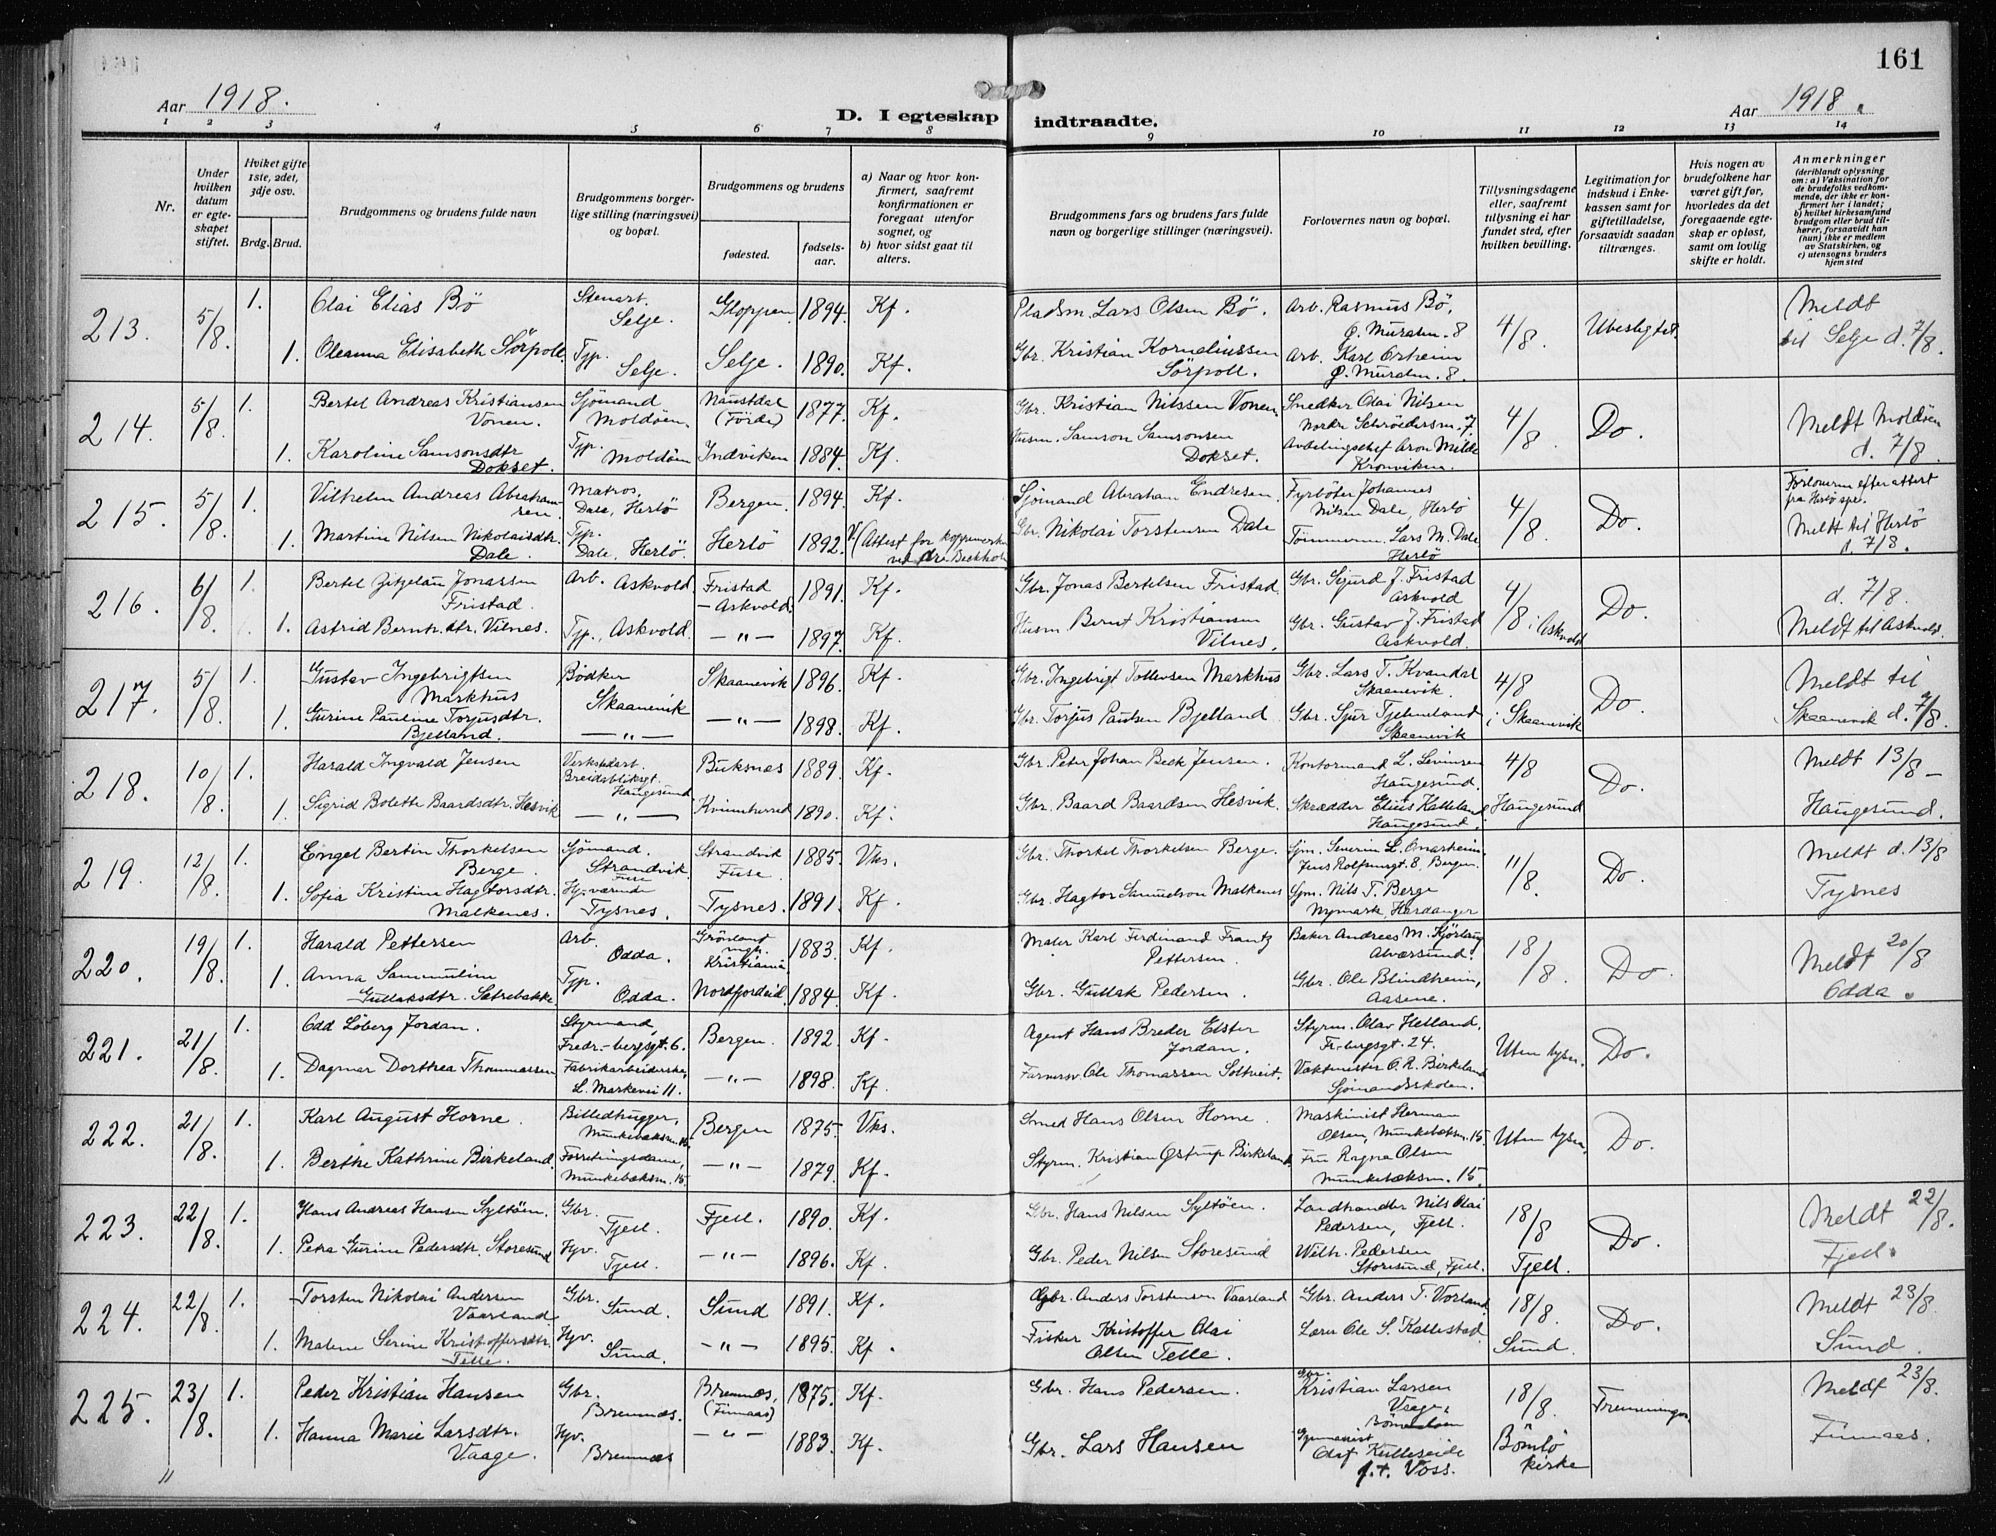 161
Aar 1918.
D. I egteskap indtraadte.
Aar 1918.
1 2 3 4 5 6 7 8 9 10 11 12 13 14
Nr.
Under hvilken datum er egteskapet stiftet.
Hviket gifte 1ste, 2det, 3dje osv.
Brdg. Brud.
Brudgommens og brudens fulde navn
Brudgommens borgerlige stilling (næringsvei) og bopæl.
Brudgommens og brudens
fødested.
fødselsaar.
a) Naar og hvor konfirmert, saafremt konfirmationen er foregaat utenfor sognet, og
b) hvor sidst gaat til alters.
Brudgommens fars og brudens fars fulde navn og borgerlige stillinger (næringsvei).
Forlovernes navn og bopæl.
Tillysningsdagene eller, saafremt tillysning ei har fundet sted, efter hvilken bevilling.
Legitimation for indskud i Enkekassen samt for giftetilladelse, forsaavidt saadan tiltrænges.
Hvis nogen av brudefolkene har været gift før, hvorledes da det foregaaende egteskap er opløst, samt om lovlig skifte er holdt.
Anmerkninger (deriblandt oplysning om: a) Vaksination for de brudefolks vedkommende, der ikke er konfirmert her i landet; b) hvilket kirkesamfund brudgom eller brud tilhører, forsaavidt han (hun) ikke er medlem av Statskirken, og c) utensogns bruders hjemsted
213. 5/8 1. Olai Elias Bö Stenarb. Selje. Gloppen 1894. Kf. Pladsm. Lars Olsen Bö. Arb. Rasmus Bö, Ø. Muralm. 8 4/8 Ubeslegtet. Meldt til Selje d. 7/8.
1. Oleanna Elisabeth Sörpoll. Typ. Selje. Selje. 1890. Kf. Gbr. Kristian Korneliussen Sörpoll. Arb. Karl Orheim Ø. Muralm. 8.
214. 5/8 1. Bertel Andreas Kristiansen Vonen. Sjömand Moldöen. Naustdal (Förde) 1877. Kf. Gbr. Kristian Nilssen Vonen. Snedker Olai Nilsen Nordre Schröedersm. 7 4/8. Do. Meldt Moldöen d. 7/8.
1. Karoline Samsonsdtr Dokset. Typ. Moldöen Indviken 1884. Kf. Husm. Samson Samsonsen Dokset. Avdelingschef Aron Milde Kronviken.
215. 5/8 1. Vilhelm Andreas Abrahamsen. Matros, Dale, Herlö Bergen. 1894. Kf. Sjömand Abraham Endresen. Fyrböter Johannes Nilsen Dale, Herlö 4/8. Do. Forloverne efter attest fra Herlö spr. Meldt til Herlö d. 7/8.
1. Martine Nilsen Nikolaisdtr. Dale. Typ. Dale, Herlö. Herlö 1892. (Attest for koppemerker ved dr. Gbr. Nikolai Torstensen Dale Tömmerm. Lars M. Dale Herlö
216. 6/8 1. Bertel Zitzelau Jonassen Fristad. Arb. Askvold. Fristad - Askvold. 1891. Kf. Gbr. Jonas Bertelsen Fristad. Gbr. Sjurd J. Fristad Askvold 4/8 i Askvold Do. d. 7/8. Meldt til Askvold.
1. Astrid Berntsdtr. Vilnes. Typ., Askvold. -"- 1897. Kf. Husm Bernt Kristiansen Vilnes. Gbr. Gustav J. Fristad Askvold.
217. 5/8 1. Gustav Ingebrigtsen Markhus Bödker Skaanevik Skaanevik 1896. Kf. Gbr. Ingebrigt Tollevsen Markhus Gbr. Lars T. Kvandal Skaanevik. 4/8 i Skaanevik Do. Meldt til Skaanevik d. 7/8.
1. Gurine Pauline Torjusdtr. Bjelland. -"- -"- 1898. Kf. Gbr. Torjus Paulsen Bjelland Gbr. Sjur Tjelmeland Skaanevik
218. 10/8 1. Harald Ingvald Jensen Verkstedarb. Breidabliksgt. Haugesund Buksnæs 1889. Kf. Gbr. Peter Johan Beck Jensen. Kontormand L. Levinsen Haugesund. 4/8 Haugesund Do. Meldt 13/8 - Haugesund.
1. Sigrid Bolette Baardsdtr. Hesvik -"- Kvinnherred 1890. Kf. Gbr. Baard Baardsen Hesvik. Skrædder Elius Kalleland Haugesund.
219. 12/8. 1. Engel Bertin Thorkelsen Berge. Sjömand. Strandvik Fuse Strandvik Fuse. 1885. Vks. Gbr. Thorkel Thorkelsen Berge. Sjm. Severin L. Onarheim Jens Rolfsensgt. 8, Bergen. 11/8. Do. Meldt d. 13/8 Tysnes
1. Sofia Kristine Hagtorsdtr. Malkenes. Hj.værende Tysnes. Tysnes. 1891. Kf. Gbr. Hagtor Samuelson Malkenes Sjm. Nils T. Berge Nymark, Hardanger
220. 19/8. 1. Harald Pettersen Arb. Odda. Grönland mgh. Kristiania 1883. Kf. Maler Karl Ferdinand Frantz Pettersen. Baker Andreas M. Kjörlaug Alversund. 18/8. Do. Meldt 20/8 Odda.
1. Anna Sammuline Gullaksdtr. Sætrebakke Typ. Odda. Nordfjordeid. 1884. Kf. Gbr. Gullak Pedersen. Gbr. Ole Blindheim, Aasene.
221. 21/8. 1. Odd Löberg Jordan. Styrmand, Fredr.-bergsgt. 6. Bergen. 1892. Kf. Agent Hans Breder Elster Jordan. Styrm. Olav Helland, Fr.bergsgt. 24. Uten lysn. Do.
1. Dagmar Dorthea Thommassen Fabrikarbeiderske, L. Markevei 11. -"- 1898. Kf. Farversv. Ole Thomassen Soltveit. Vaktmester O. R. Birkeland Sjömandsskolen.
222. 21/8. 1. Karl August Horne. Billedhugger, Munkebæksm. 15. Bergen 1875. Vks. Smed Hans Olsen Horne. Maskinist Herman Olsen, Munkebæksm. 15. Uten lysn. Do.
1. Berthe Kathrine Birkeland. Forretningsdame, Munkebæksm. 15. -"- 1879. Kf. Styrm. Kristian Østrup Birkeland. Fru Ragna Olsen Munkebæksm. 15.
223. 22/8. 1. Hans Andreas Hansen Syltöen. Gbr. Fjell. Fjell. 1890. Kf. Gbr. Hans Nilsen Syltöen. Landhandler Nils Olai Pedersen, Fjell. 18/8 Fjell. Do. Meldt 22/8. Fjell.
1. Petra Gurine Pedersdtr. Storesund Hjv. Fjell. -"- 1896. Kf. Gbr. Peder Nilsen Storesund Wilh. Pedersen Storesund, Fjell.
224. 22/8. 1. Torsten Nikolai Andersen Vaarland Gbr. Sund. Sund 1891. Kf. Gbr. Anders Torstensen Vaarland Gbr. Anders T. Vorland 18/8. Sund. Do. Meldt 23/8. Sund.
1. Malene Serine Kristoffersdtr. Telle. Hjv. Sund. -"- 1895. Kf. Fisker Kristoffer Olai Olsen Telle. Lærer Ole S. Kallestad.
225. 23/8. 1. Peder Kristian Hansen Gbr. Bremnæs. Bremnæs, (Finnaas) 1875. Kf. Gbr. Hans Pedersen. Gbr. Kristian Larsen Vaage, Bömmeloen 18/8. Bömlo kirke Fremminger. Meldt 23/8. Finnaas.
1. Hanna Marie Larsdtr. Vaage. Hjv. Bremnæs -"- 1883. Kf. Gbr. Lars Hansen Gymnasist Olaf Kulleseide f.t. Voss.
"